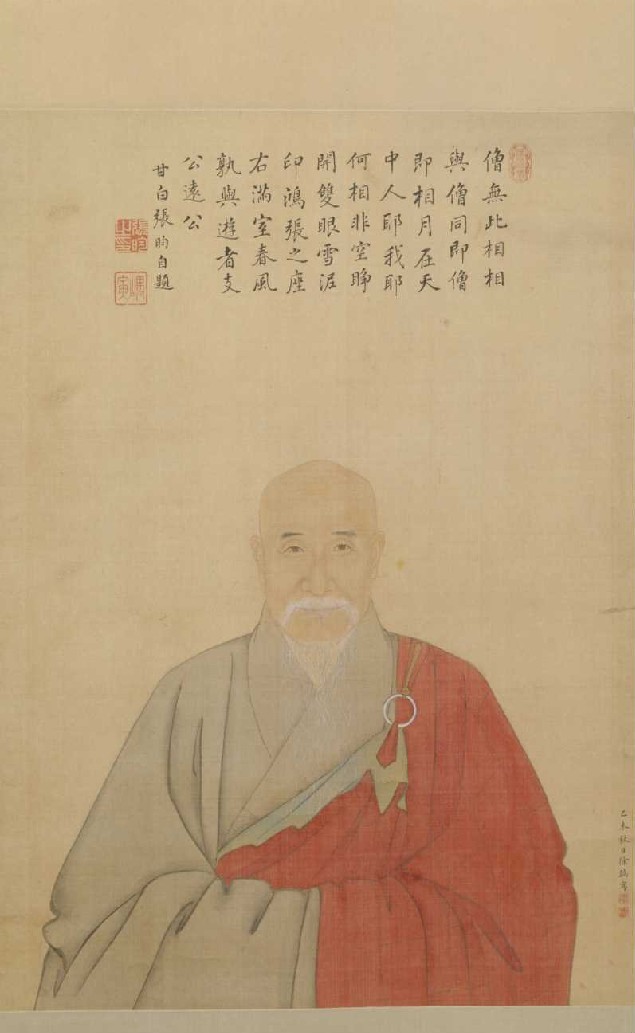 僧無此相相
與僧同即僧
即相月在天
中人耶我耶
何相非空睜
開雙眼雪泥
印鴻張之座
右滿室春風
孰與遊者支
公遠公
甘白張昀自題
乙未秋日徐璋寫